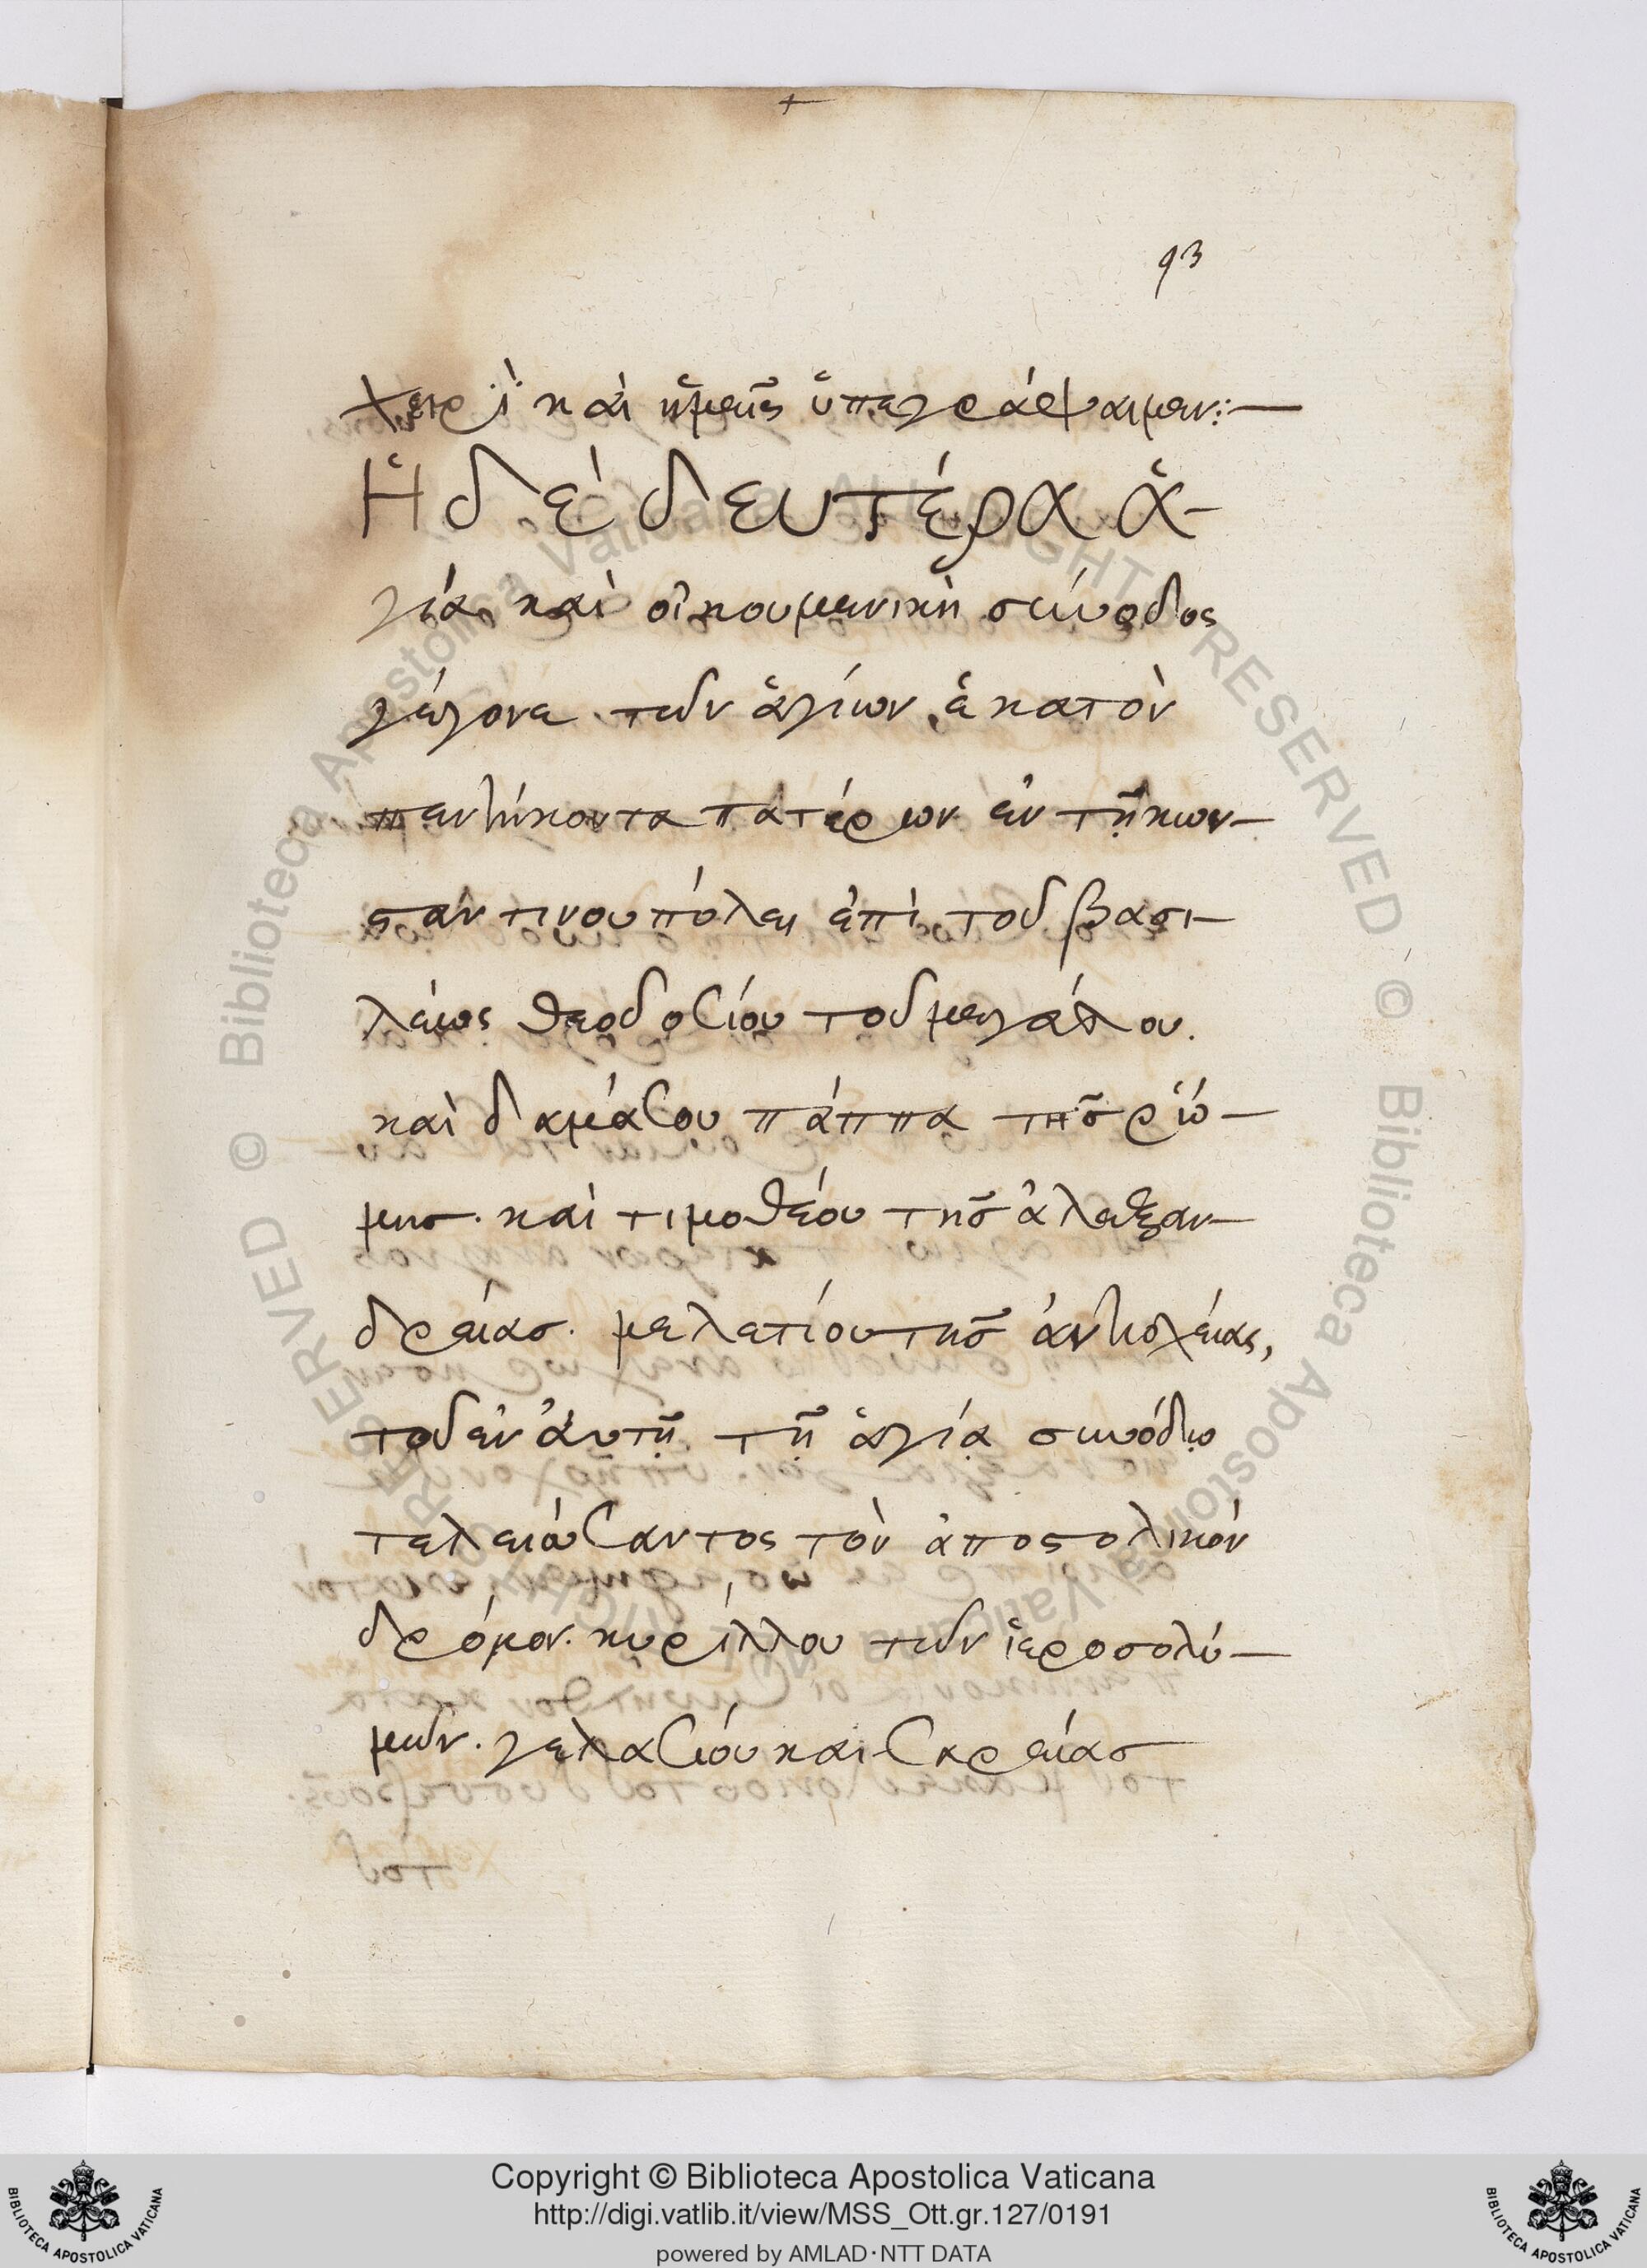 93
χειρὶ καὶ ἡμεῖς ὑπεγράψαμεν:—
Ἡ δὲ δευτέρα ἁ-
γία καὶ οἰκουμενικὴ σύνοδος
γέγονε τῶν ἁγίων ἑκατὸν
πεντήκοντα πατέρων ἐν τῇ κων-
σταντινουπόλει ἐπὶ τοῦ βασι-
λέως θεοδοσίου τοῦ μεγάλου.
καὶ δαμάσου πάππα τῆς ῥώ-
μης. καὶ τιμοθέου τῆς ἀλεξαν-
δρείας. μελετίου τῆς ἀντιοχείας,
τοῦ ἐν ἀυτῇ τῇ ἁγίᾳ συνόδῳ
τελειώσαντος τὸν ἀποστολικόν
δρόμον. κυρίλλου τῶν ἱεροσολύ-
μων. γελασίου καισαρείας
Copyright © Biblioteca Apostolica Vaticana
http://digi.vatlib.it/view/MSS_Ott.gr.127/0191
powered by AMLAD·NTT DATA
BIBLIOTECA APOSTOLICA VATICANA
BIBLIOTECA APOSTOLICA VATICANA